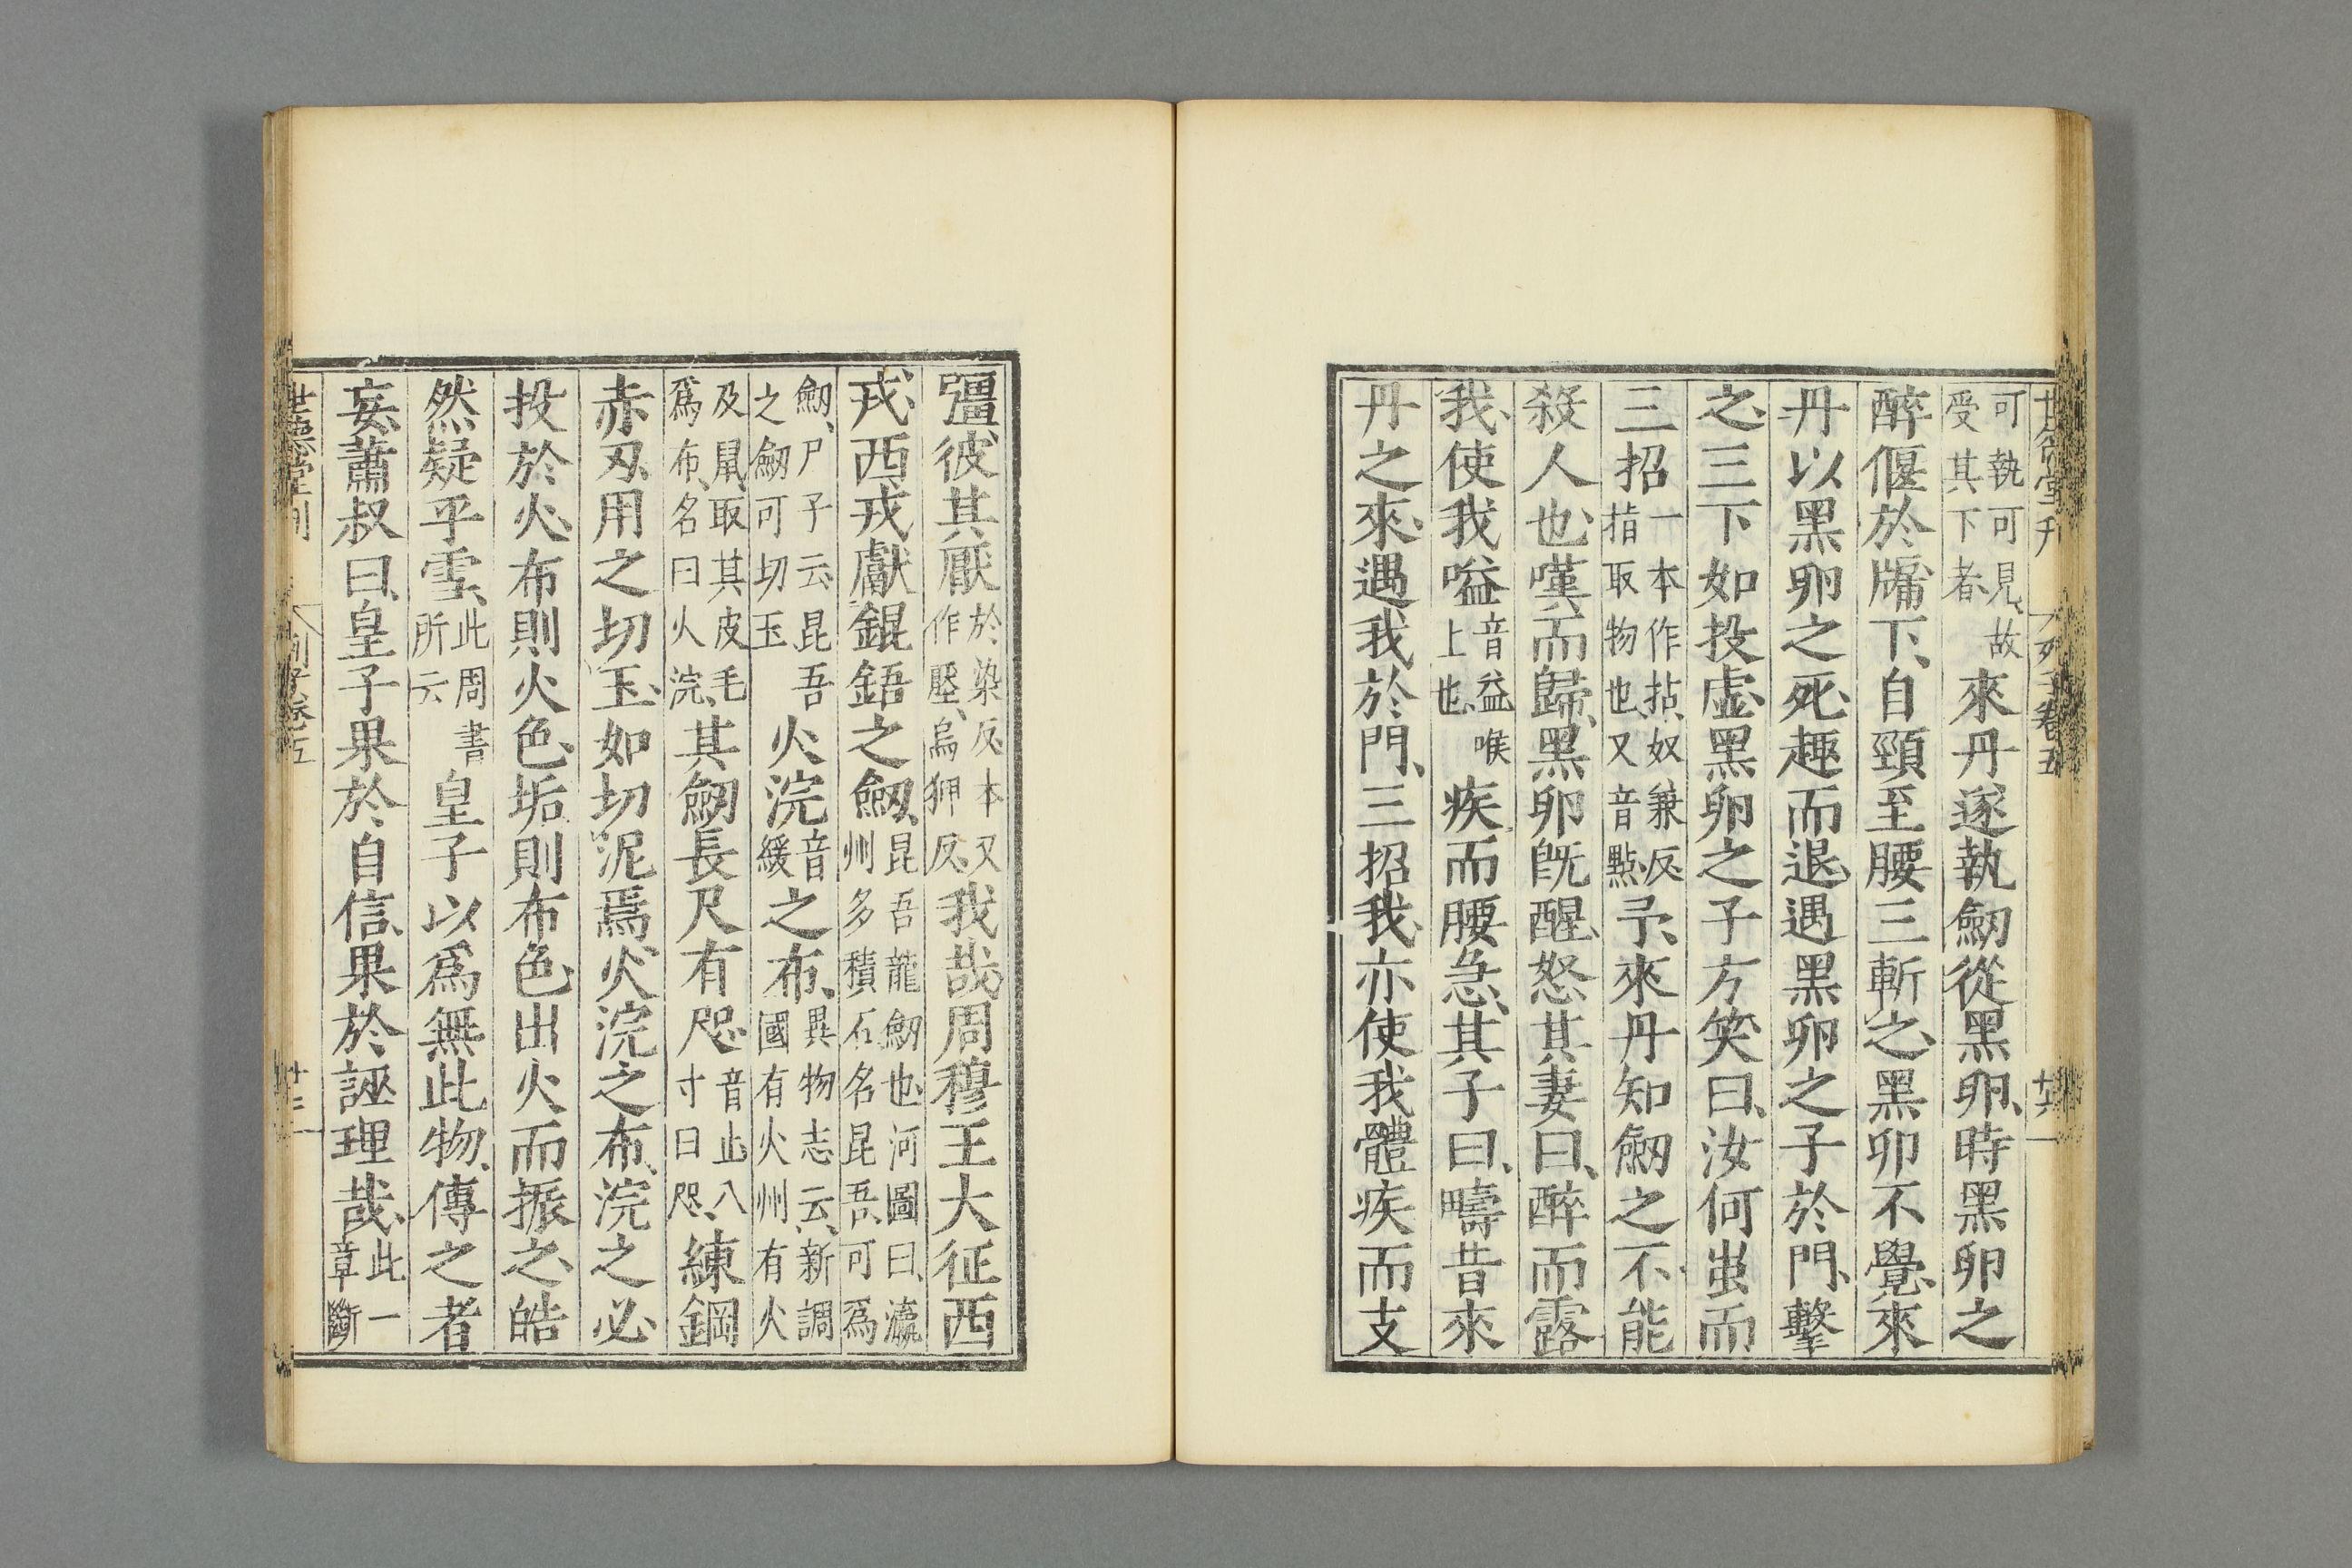 世德堂刊 列子卷五 廿六
可執可見、故受其下者、來丹遂執劒從黑卵、時黑卵之
醉偃於牖下、自頸至腰三斬之、黑卵不覺、來
丹以黑卵之死、趣而退、遇黑卵之子於門、擊
之三下、如投虛、黑卵之子方笑曰、汝何蚩而
三招一本作拈、奴兼反、指取物也、又音點、予、來丹知劒之不能
殺人也、嘆而歸、黑卵旣醒、怒其妻曰、醉而露
我、使我嗌音益喉上也、疾而腰急、其子曰、疇昔來
丹之來、遇我於門、三招我、亦使我體疾而支
彊、彼其厭於染反、本又作壓、烏狎反、我哉周穆王大征西
戎、西戎獻錕鋙之劒、昆吾龍劒也、河圖曰、瀛州多積石名昆吾、可爲
劒、尸子云、昆吾之劒可切玉火浣音緩之布、異物志云、新調國有火州、有火
及鼠、取其皮毛爲布、名曰火浣、其劒長尺有咫、音止八寸曰咫、練鋼
赤刃、用之切玉、如切泥焉、火浣之布、浣之必
投於火、布則火色、垢則布色、出火而振之、皓
然疑乎雪、此周書所云皇子以爲無此物、傳之者
妄、蕭叔曰、皇子果於自信、果於誣理哉、此一章斷
世德堂刊 列子卷五